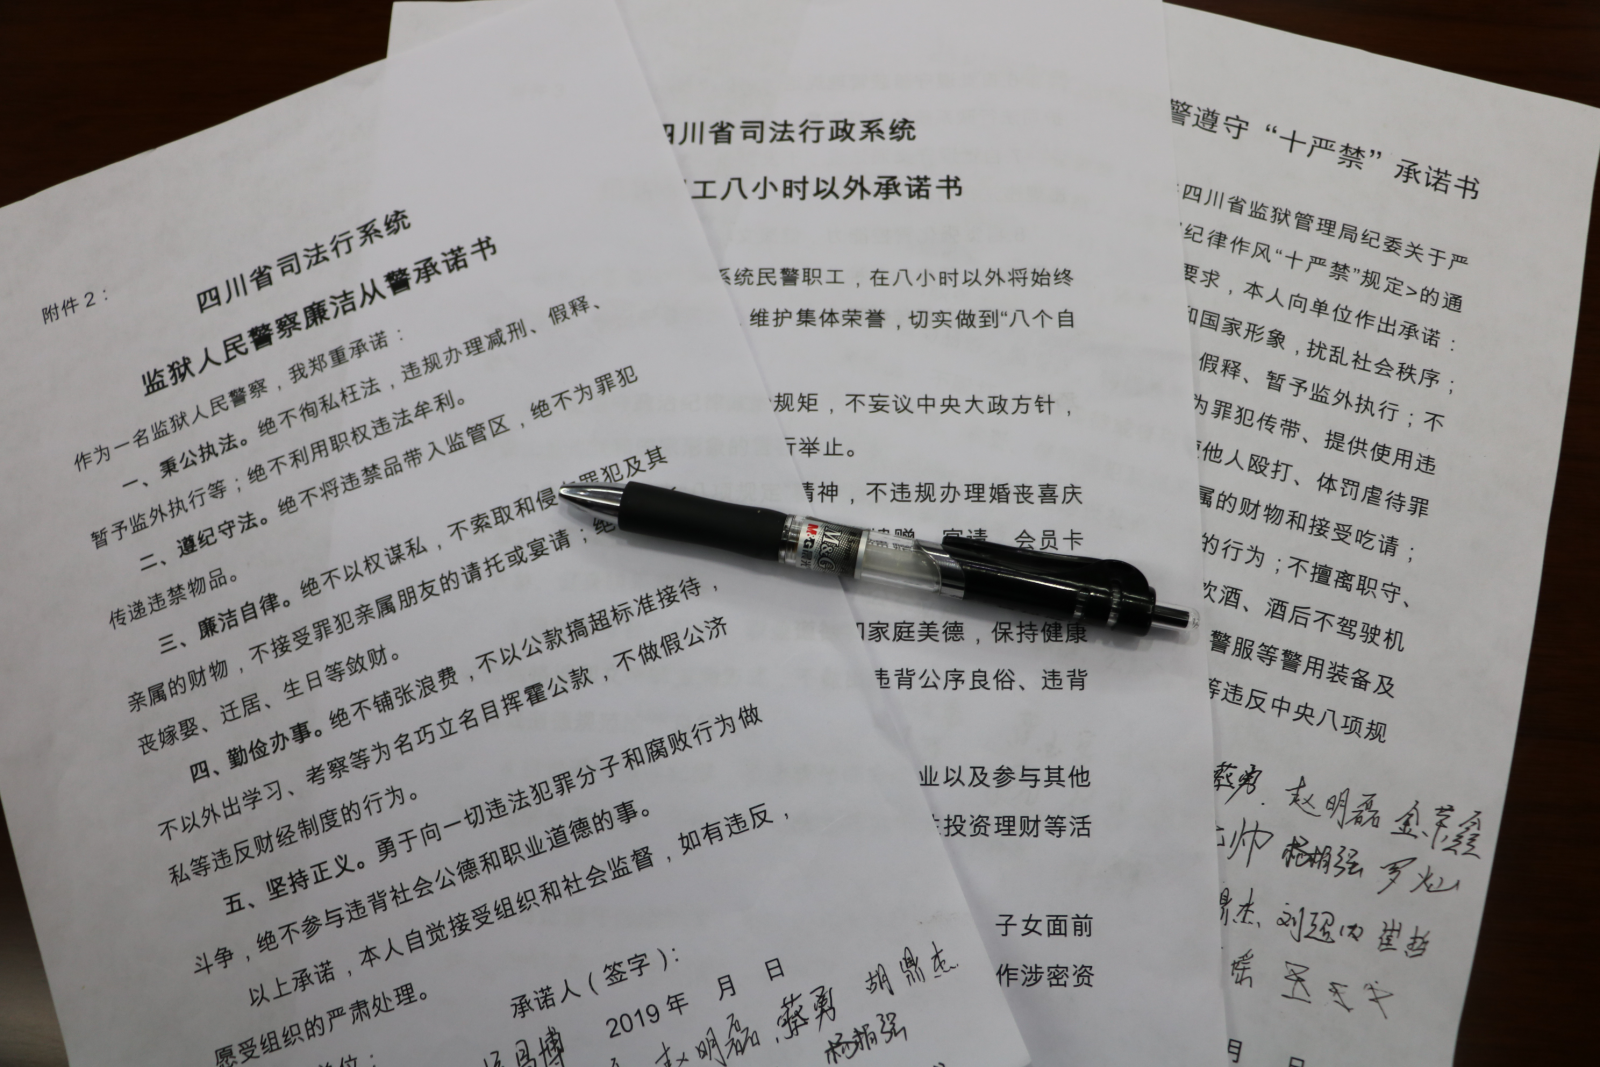 附件2：
四川省司法行系统
监狱人民警察廉洁从警承诺书
作为一名监狱人民警察，我郑重承诺：
一、秉公执法。绝不徇私枉法，违规办理减刑、假释、
暂予监外执行等；绝不利用职权违法牟利。
二、遵纪守法。绝不将违禁品带入监管区，绝不为罪犯
传递违禁物品。
三、廉洁自律。绝不以权谋私，不索取和侵 罪犯及其
亲属的财物，不接受罪犯亲属朋友的请托或宴请；绝
丧嫁娶、迁居、生日等敛财。
四、勤俭办事。绝不铺张浪费，不以公款搞超标准接待，
不以外出学习、考察等为名巧立名目挥霍公款，不做假公济
私等违反财经制度的行为。
五、坚持正义。勇于向一切违法犯罪分子和腐败行为做
斗争，绝不参与违背社会公德和职业道德的事。
以上承诺，本人自觉接受组织和社会监督，如有违反，
愿受组织的严肃处理。
承诺人（签字）：
2019年 月 日
单位：
赵明磊 蔡勇 胡鼎杰
杨朝强
四川省司法行政系统
工八小时以外承诺书
系统民警职工，在八小时以外将始终
维护集体荣誉，切实做到“八个自
规矩，不妄议中央大政方针，
行举止。
精神，不违规办理婚丧喜庆
宴请、会员卡
和家庭美德，保持健康
违背公序良俗、违背
业以及参与其他
投资理财等活
子女面前
作涉密资
警遵守“十严禁”承诺书
四川省监狱管理局纪委关于严
纪律作风“十严禁”规定>的通
要求，本人向单位作出承诺：
和国家形象，扰乱社会秩序；
假释、暂予监外执行；不
为罪犯传带、提供使用违
他人殴打、体罚虐待罪
属的财物和接受吃请；
的行为；不擅离职守、
饮酒、酒后不驾驶机
警服等警用装备及
等违反中央八项规
蔡勇 赵明磊
帅 杨朝强 罗灿
鼎杰 崔哲
瑶
月 日
M&G